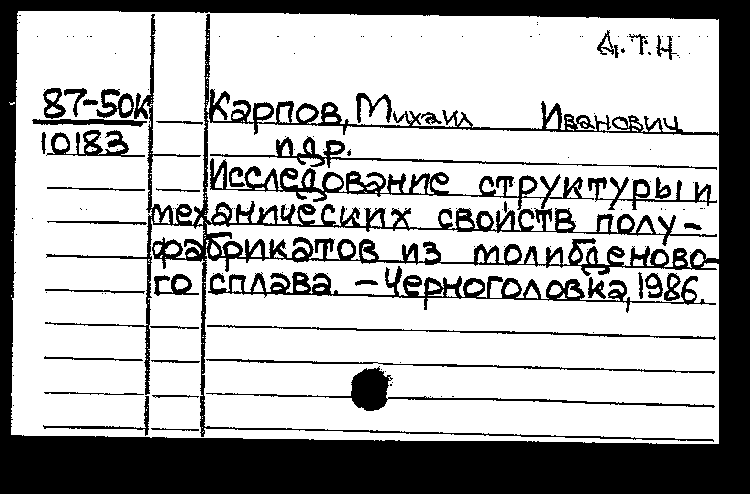 Д.Т.Н
87-50К Карпов, Михаил Иванович
10183 и др.
Исследование структуры и
механических свойств полу-
фабрикатов из молибденово-
го сплава. – Черноголовка, 1986.